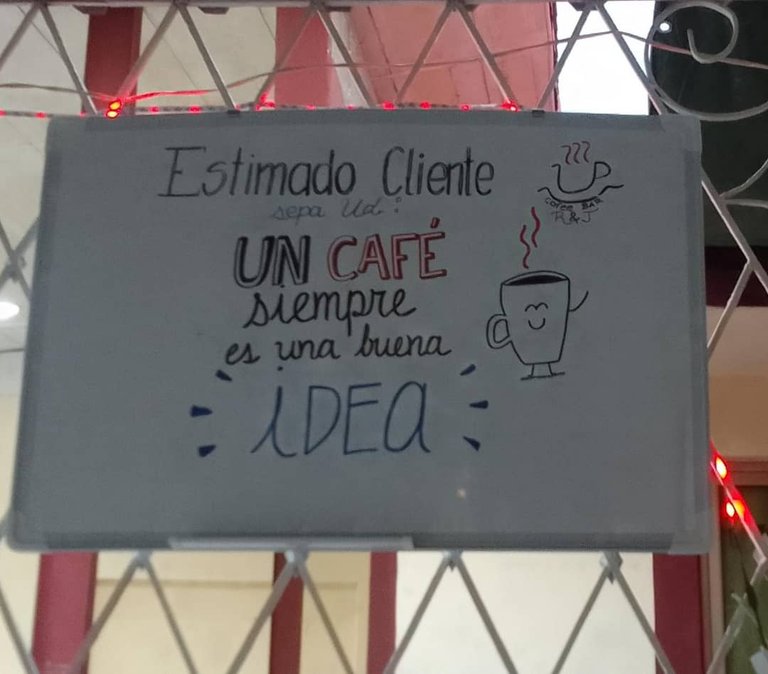 Estimado Cliente
sepa Ud.:
UN CAFÉ
siempre
es una buena
iDEA
Coffee BAR
R&J